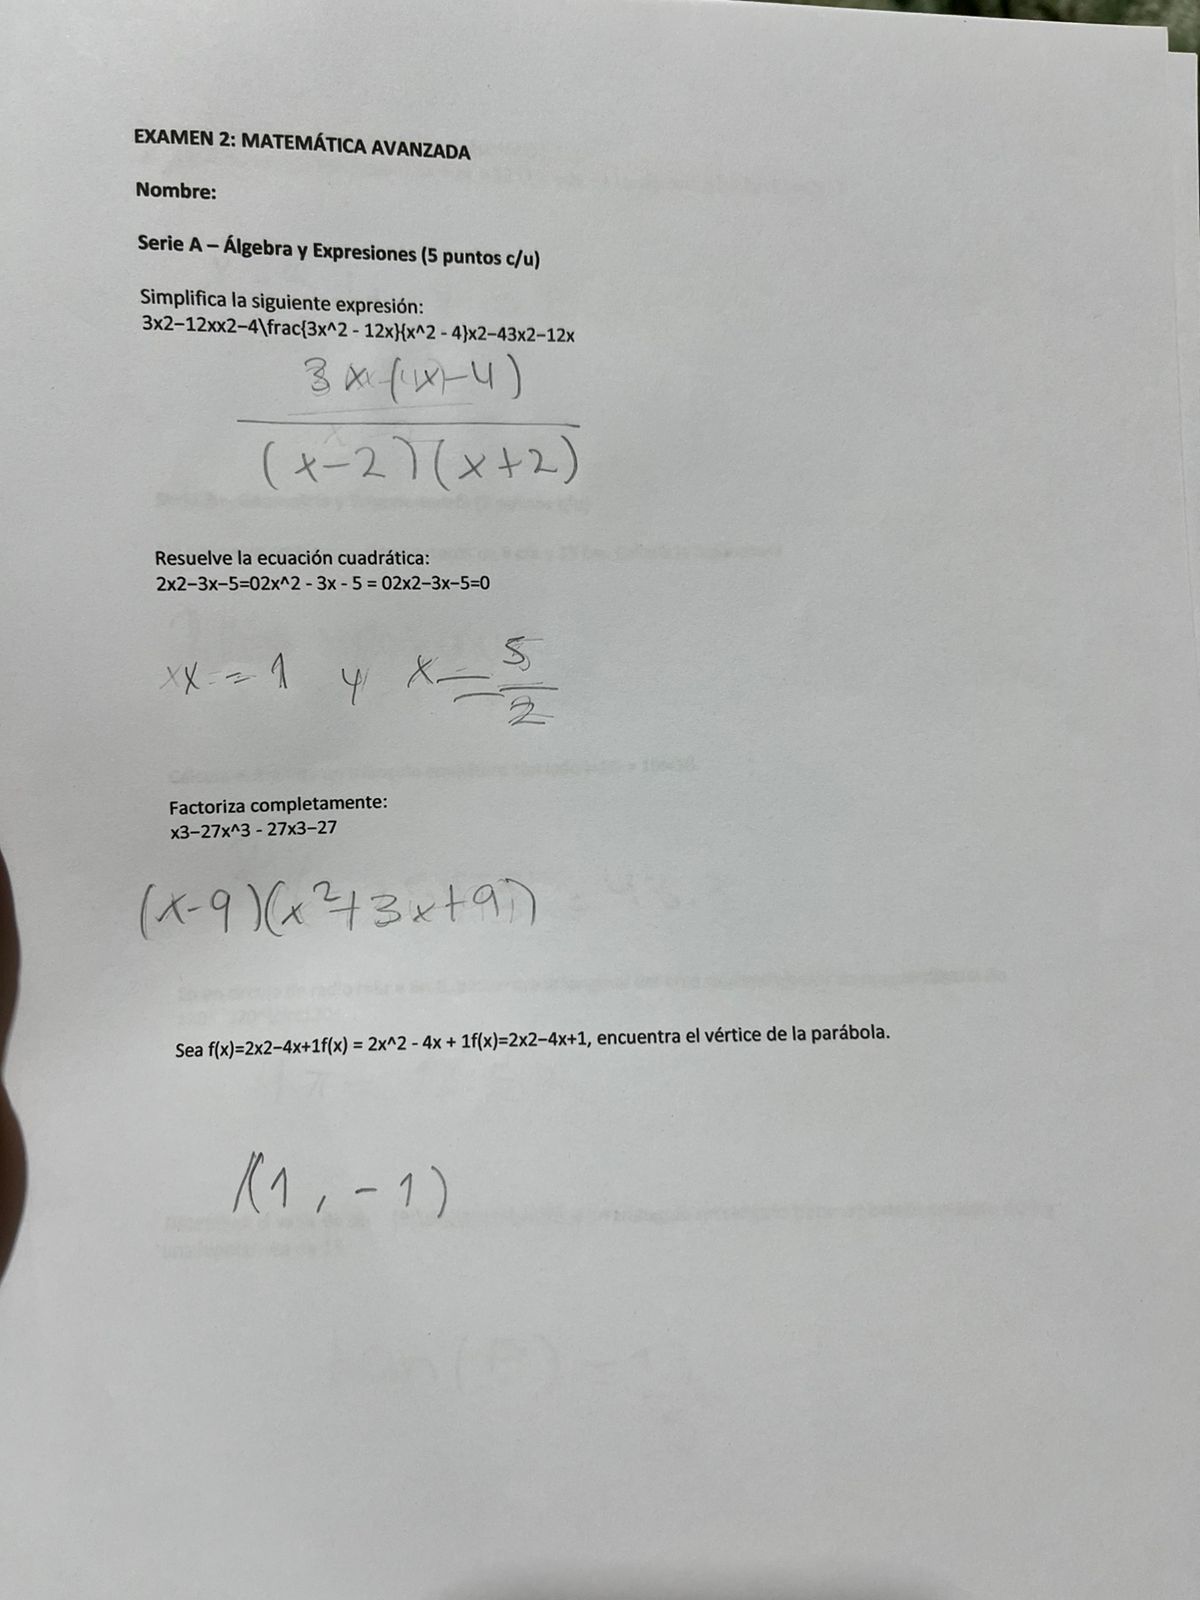 EXAMEN 2: MATEMÁTICA AVANZADA
Nombre:
Serie A – Álgebra y Expresiones (5 puntos c/u)
Simplifica la siguiente expresión:
3x2−12xx2−4\frac{3x^2 - 12x}{x^2 - 4}x2−43x2−12x
3x(x-4)
(x-2)(x+2)
Resuelve la ecuación cuadrática:
2x2−3x−5=02x^2 - 3x - 5 = 02x2−3x−5=0
x = 1 y x = 5
2
Factoriza completamente:
x3−27x^3 - 27x3−27
(x-9)(x²+3x+9)
Sea f(x)=2x2−4x+1f(x) = 2x^2 - 4x + 1f(x)=2x2−4x+1, encuentra el vértice de la parábola.
(1, -1)